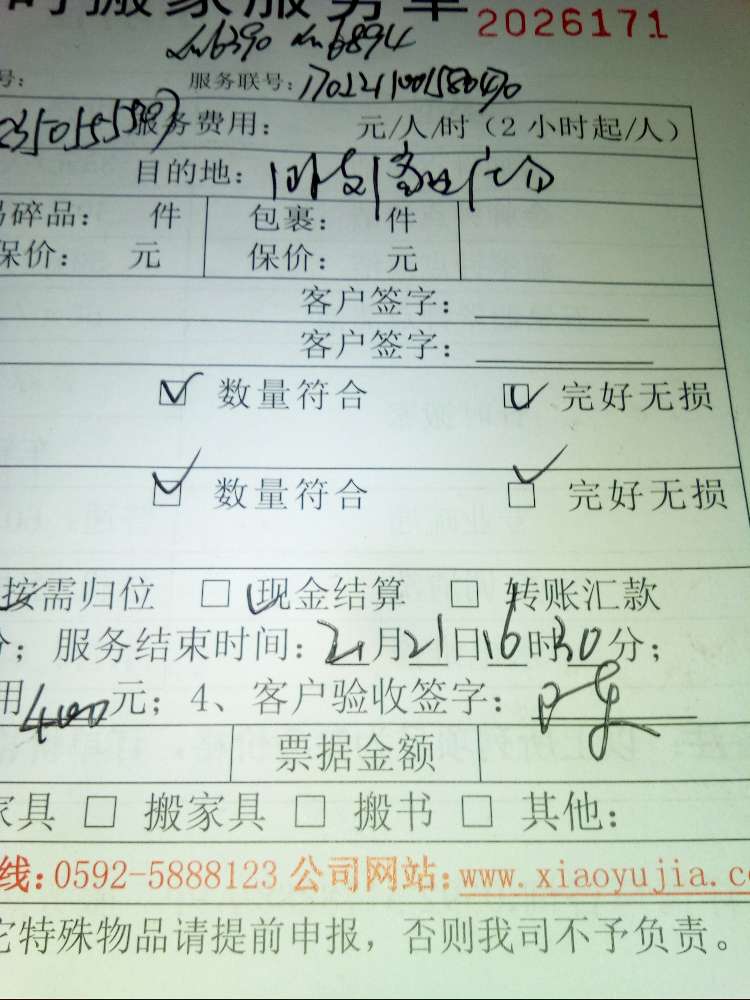 时搬家服务单 2026171
号: 服务联号:
服务费用: 元/人/时（2小时起/人）
目的地:
易碎品: 件 包裹: 件
保价: 元 保价: 元
客户签字:
客户签字:
数量符合 完好无损
数量符合 完好无损
按需归位 □ 现金结算 □ 转账汇款
分；服务结束时间: 2月21日16时30分；
用400元；4、客户验收签字:
票据金额
家具 □ 搬家具 □ 搬书 □ 其他:
线:0592-5888123 公司网站:www.xiaoyujia.co
它特殊物品请提前申报，否则我司不予负责。